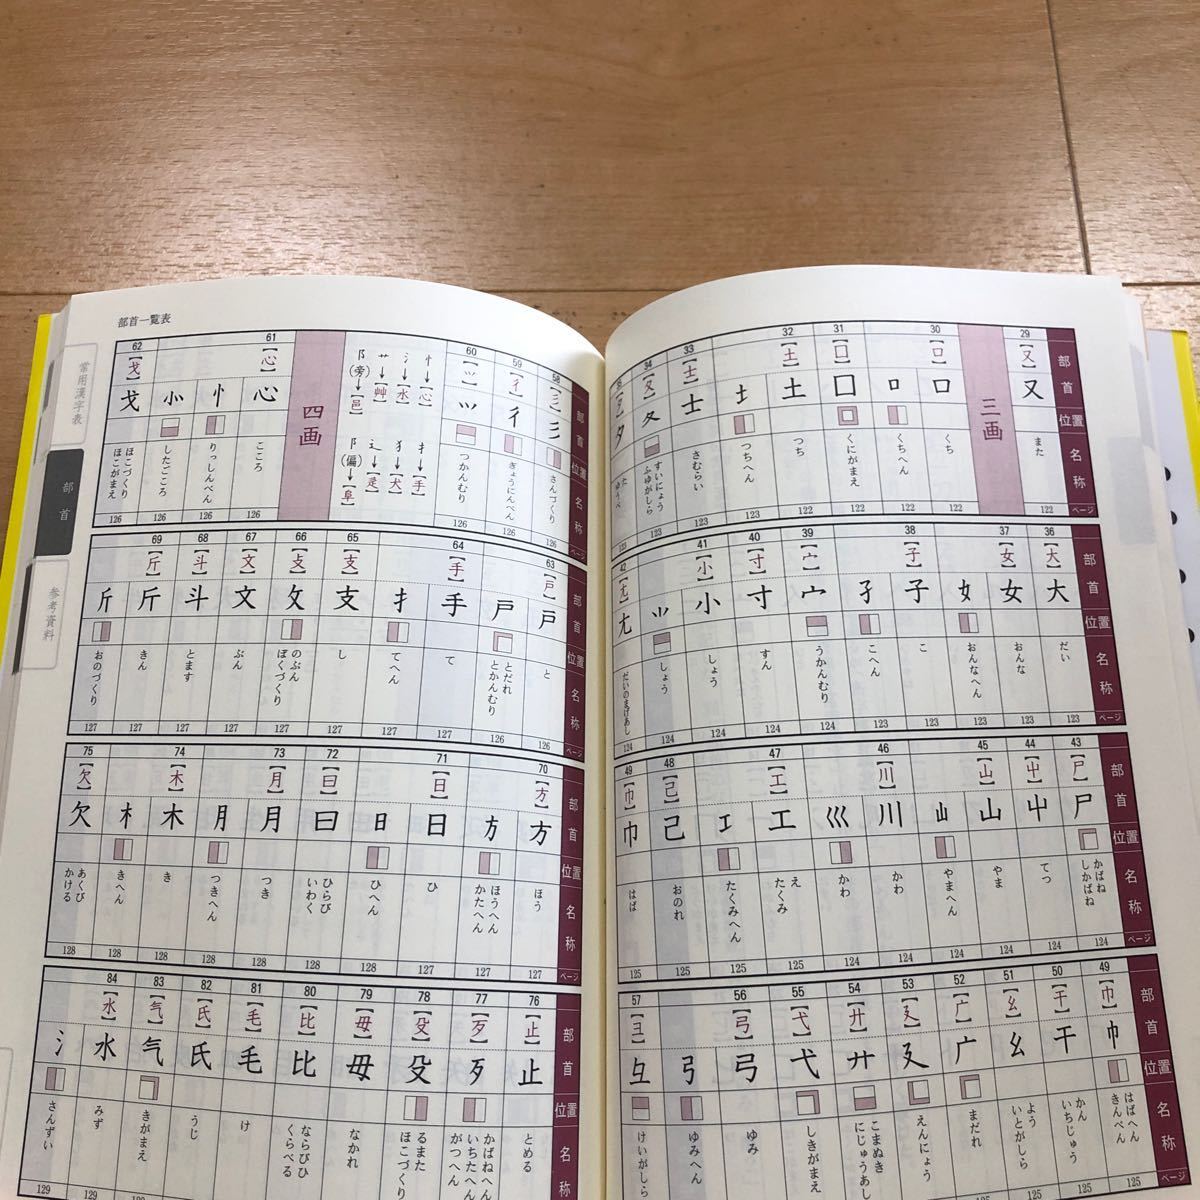 部首 位置 名称 ページ
29 30 31 32 33 34
【又】 三画 【口】 【囗】 【土】 【士】 【夂】
又 口 口 囗 土 土 士 夂 夕
また くち くちへん くにがまえ つち つちへん さむらい すいにょう ふゆがしら た ゆうべ
122 122 122 122 123 123 123 123 123
部首 位置 名称 ページ
36 37 38 39 40 41 42
【大】 【女】 【子】 【宀】 【寸】 【小】 【尢】
大 女 女 子 子 宀 寸 小 ⺌ 尢
だい おんな おんなへん こ こへん うかんむり すん しょう しょう だいのまげあし
123 123 123 123 123 124 124 124 124 124
部首 位置 名称 ページ
43 44 45 46 47 48 49
【尸】 【屮】 【山】 【川】 【工】 【己】 【巾】
尸 屮 山 山 川 巛 工 工 己 巾
かばね しかばね てつ やま やまへん かわ かわ え たくみ たくみへん おのれ はば
124 124 124 124 124 124 125 125 125 125
部首 位置 名称
49 50 51 52 53 54 55 56 57
【巾】 【干】 【幺】 【广】 【廴】 【廾】 【弋】 【弓】 【彐】
巾 干 幺 广 廴 廾 弋 弓 弓 彑
はばへん きんべん かん いちじゅう よう いとがしら まだれ えんにょう こまぬき にじゅうあし しきがまえ ゆみ ゆみへん けいがしら
125 125 125 125 125
部首一覧表
常用漢字表
部首
参考資料
部首 位置 名称 ページ
58 59 60 61 62
【彡】 【彳】 【⺍】 四画 【心】 【戈】
彡 彳 ⺍ 心 忄 ⺗ 戈
さんづくり ぎょうにんべん つかんむり こころ りっしんべん したごころ ほこづくり ほこがまえ
126 126 126 126 126 126 126
忄→【心】 扌→【手】
氵→【水】 犭→【犬】
艹→【艸】 辶→【辵】
阝(旁)→【邑】 阝(偏)→【阜】
部首 位置 名称 ページ
63 64 65 66 67 68 69
【戸】 【手】 【支】 【攴】 【文】 【斗】 【斤】
戸 戸 手 扌 支 攵 文 斗 斤 斤
と とだれ とかんむり て てへん し のぶん ぼくづくり ぶん とます きん おのづくり
126 126 127 127 127 127 127 127 127 127
部首 位置 名称 ページ
70 71 72 73 74 75
【方】 【日】 【曰】 【月】 【木】 【欠】
方 方 日 日 曰 月 月 木 木 欠
ほう ほうへん かたへん ひ ひへん ひらび いわく つき つきへん き きへん あくび かける
127 127 127 128 128 128 128 128 128 128
部首 位置 名称
76 77 78 79 80 81 82 83 84
【止】 【歹】 【殳】 【毋】 【比】 【毛】 【氏】 【气】 【水】
止 歹 殳 毋 比 毛 氏 气 水 氵
とめる かばねへん いちたへん がつへん るまた ほこづくり なかれ ならびひ くらべる け うじ きがまえ みず さんずい
129 129